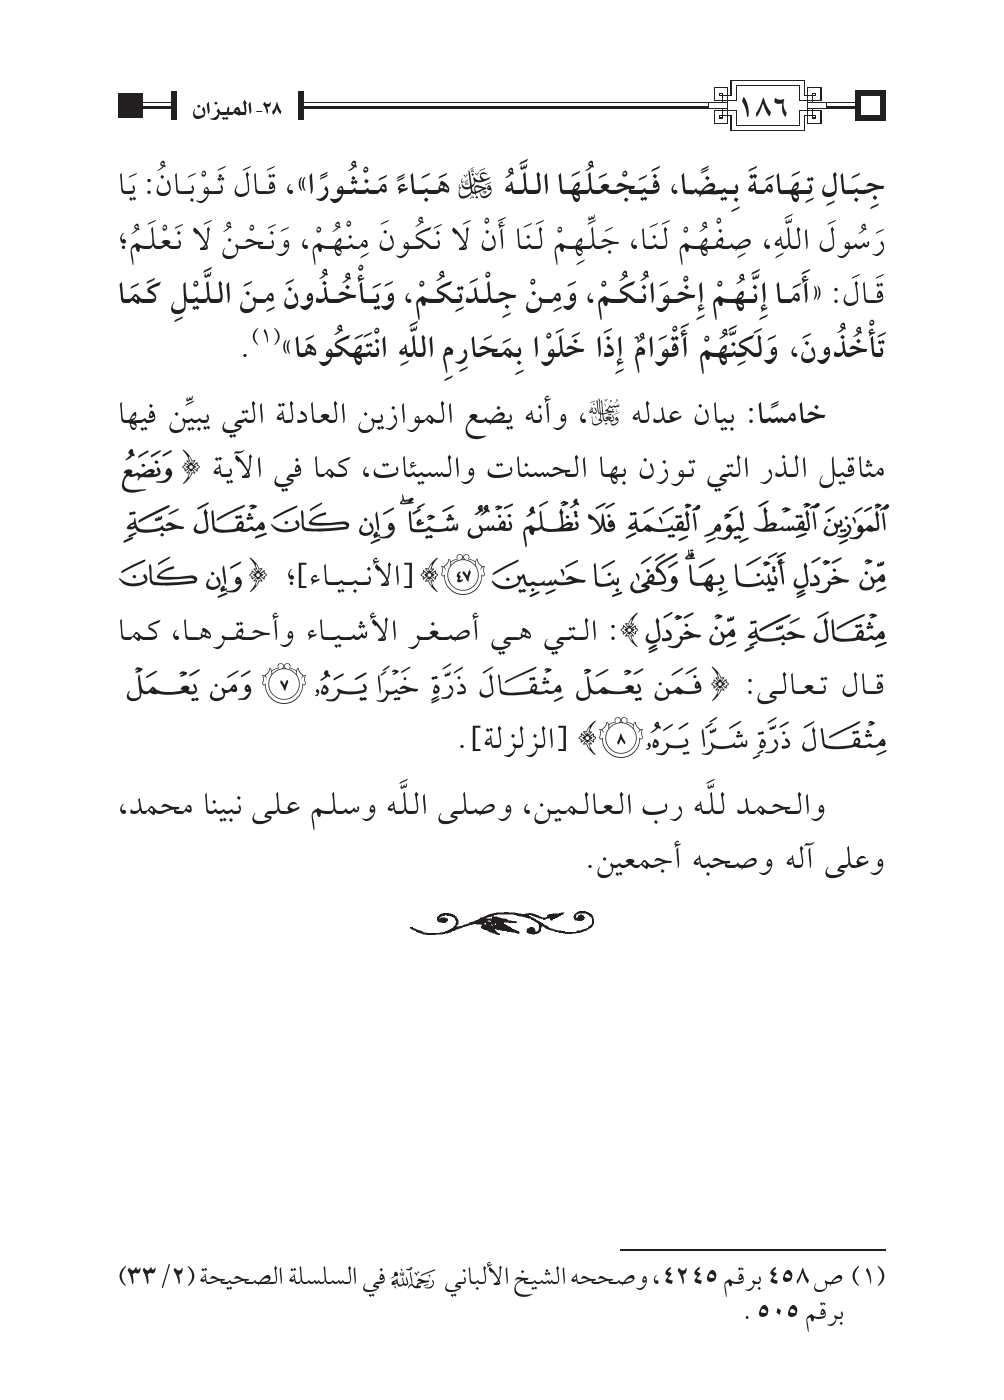 ١٨٦
٢٨- الميزان
جِبَالِ تِهَامَةَ بِيضًا، فَيَجْعَلُهَا اللَّهُ عَزَّ وَجَلَّ هَبَاءً مَنْثُورًا»، قَالَ ثَوْبَانُ: يَا
رَسُولَ اللَّهِ، صِفْهُمْ لَنَا، جَلِّهِمْ لَنَا أَنْ لَا نَكُونَ مِنْهُمْ، وَنَحْنُ لَا نَعْلَمُ؛
قَالَ: «أَمَا إِنَّهُمْ إِخْوَانُكُمْ، وَمِنْ جِلْدَتِكُمْ، وَيَأْخُذُونَ مِنَ اللَّيْلِ كَمَا
تَأْخُذُونَ، وَلَكِنَّهُمْ أَقْوَامٌ إِذَا خَلَوْا بِمَحَارِمِ اللَّهِ انْتَهَكُوهَا»(١).
خامسًا: بيان عدله سبحانه وتعالى، وأنه يضع الموازين العادلة التي يبيِّن فيها
مثاقيل الذر التي توزن بها الحسنات والسيئات، كما في الآية ﴿ وَنَضَعُ
ٱلْمَوَٰزِينَ ٱلْقِسْطَ لِيَوْمِ ٱلْقِيَٰمَةِ فَلَا تُظْلَمُ نَفْسٌ شَيْـًٔا ۖ وَإِن كَانَ مِثْقَالَ حَبَّةٍ
مِّنْ خَرْدَلٍ أَتَيْنَا بِهَا ۗ وَكَفَىٰ بِنَا حَٰسِبِينَ ٤٧﴾ [الأنبياء]؛ ﴿ وَإِن كَانَ
مِثْقَالَ حَبَّةٍ مِّنْ خَرْدَلٍ ﴾: التي هي أصغر الأشياء وأحقرها، كما
قال تعالى: ﴿ فَمَن يَعْمَلْ مِثْقَالَ ذَرَّةٍ خَيْرًا يَرَهُۥ ٧ وَمَن يَعْمَلْ
مِثْقَالَ ذَرَّةٍ شَرًّا يَرَهُۥ ٨﴾ [الزلزلة].
والحمد للَّه رب العالمين، وصلى اللَّه وسلم على نبينا محمد،
وعلى آله وصحبه أجمعين.
(١) ص ٤٥٨ برقم ٤٢٤٥، وصححه الشيخ الألباني رحمه الله في السلسلة الصحيحة (٢/ ٣٣)
برقم ٥٠٥ .